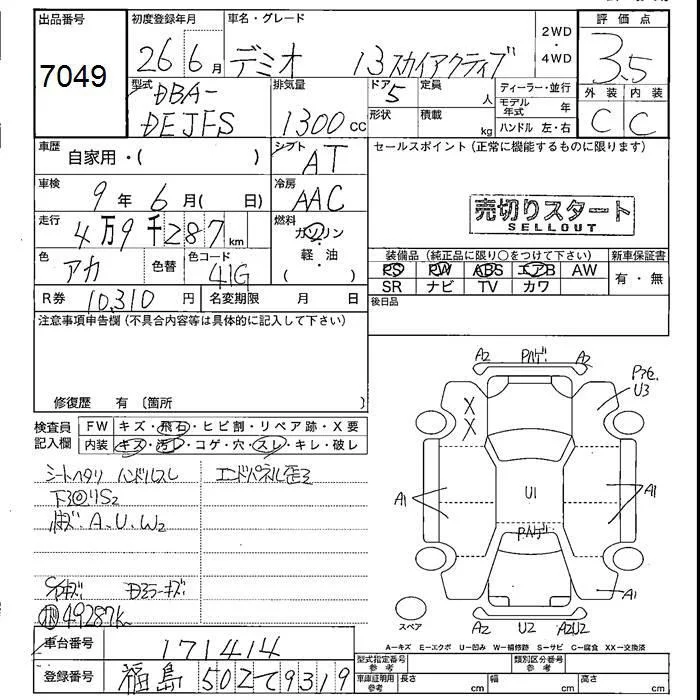 出品番号 7049
初度登録年月 26 6月
車名・グレード デミオ 13スカイアクティブ
2WD・4WD
評価点 3.5
外装 C 内装 C
型式 DBA-DEJFS
排気量 1300cc
ドア 5 形状
定員 人
積載 kg
ディーラー・並行
モデル年式 年
ハンドル 左・右
車歴 自家用・( )
シフト AT
車検 9年 6月( 日)
冷房 AAC
走行 4万9千287km
燃料 ガソリン・軽・油 ( )
色 アカ 色替
色コード 41G
R券 10,310円
名変期限 月 日
セールスポイント(正常に機能するものに限ります)
売切りスタート
SELLOUT
装備品(純正品に限り○をつけて下さい)
PS PW ABS エアB AW
SR ナビ TV カワ
新車保証書 有・無
後日品
注意事項申告欄(不具合内容等は具体的に記入して下さい)
修復歴 有(箇所 )
検査員記入欄
FW キズ・飛石・ヒビ割・リペア跡・X要
内装 キズ・汚レ・コゲ・穴・スレ・キレ・破レ
シートヘタリ ハンドルスレ
エンドパネル歪ミ
A.U.W2
49287k
A2 Pハゲ A2
U3
X
X
A1 U1 A1
Pハゲ
A2 U2 A2U2
スペア
A－キズ E－エクボ U－凹み W－補修跡 S－サビ C－腐食 XX－交換済
車台番号 171414
登録番号 福島 502 て 9319
型式指定番号 参考
類別区分番号 参考
車庫証明用 参考
長さ cm 幅 cm 高さ cm